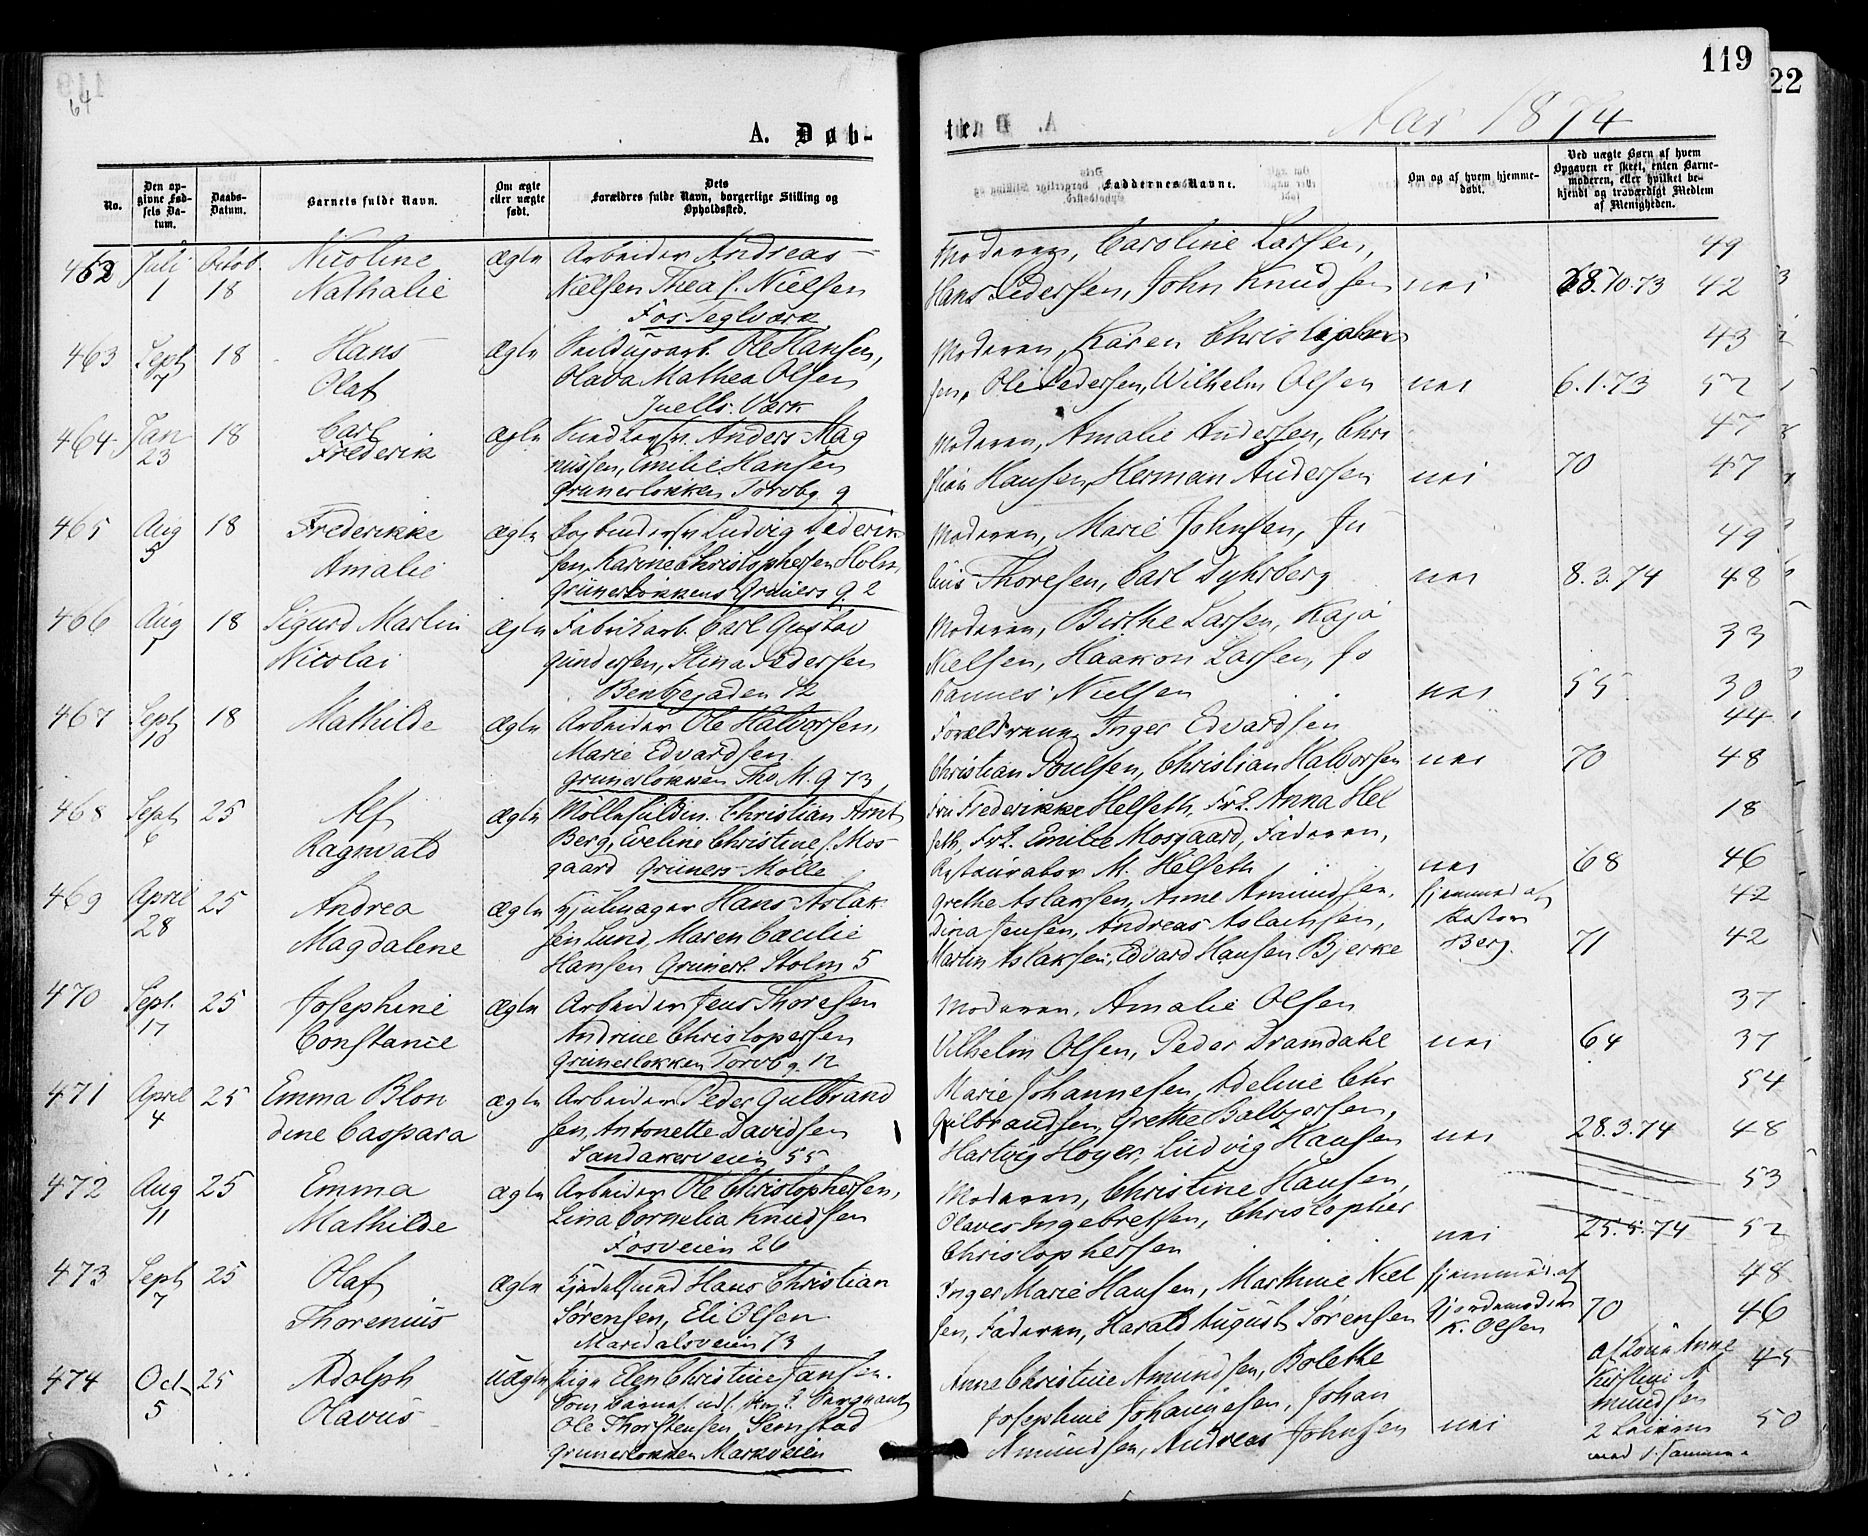 119
22
64
A. Døb-
te
Aar 1874
No.
Den opgivne Fødsels Datum.
Daabs-Datum.
Barnets fulde Navn.
Om ægte eller uægte født.
Dets Forældres fulde Navn, borgerlige Stilling og Opholdssted.
Faddernes Navne.
Om og af hvem hjemmedøbt.
Ved uægte Børn af hvem Opgaven er skeet, enten Barnemoderen, eller hvilket bekjendt og troværdigt Medlem af Menigheden.
462 Juli 1 Octob. 18 Nicoline Nathalie ægte
Arbeider Andreas
Nielsen Thea f. Nielsen
Fos Teglværk
Moderen, Caroline Larsen,
Hans Pedersen, John Knudsen nei 28.10.73
49
42
463 Sept 7 18 Hans Olaf ægte
Ole Hansen,
Olava Mathea Olsen
Juells Værk
Moderen, Karen Christophersen, Ole Pedersen, Wilhelm Olsen nei 6.1.73
43
52
464 Jan 23 18 Carl Frederik ægte
Anders Mag
nussen, Emilie Hansen
Grünerløkken Torvbg. 9
Moderen, Amalie Andersen, Chri
stian Hansen, Herman Andersen nei 70
47
47
465 Aug 5 18 Frederikke Amalie ægte
Bogbindersv. Ludvig Diderik
sen, Karine Christophersen Holm
Grünerløkkens Grüners g. 2
Moderen, Marie Johnsen, Ju
lius Thoresen, Carl Dyhrberg nei 8.3.74
49
48
466 Aug 7 18 Sigurd Martin Nicolai ægte
Fabrikarb. Carl Gustav
Gundersen, Stina Pedersen
Bentsegaden 12
Moderen, Birthe Larsen, Kaja
Nielsen, Haakon Larsen, Jo
hannes Nielsen nei 55
33
30
467 Sept 10 18 Mathilde ægte
Arbeider Ole Halvorsen,
Marie Edvardsen
Grünerløkken Tho. M. g 73
Forældrene, Inger Edvardsen
Christian Poulsen, Christian Halvorsen nei 70
44
48
468 Sept 6 25 Alf Ragnvald ægte
Møllefuldm. Christian Arnt
Berg, Eveline Christine f. Mos-
gaard Grüners Mølle
Fru Frederikke Helseth, Frk. Anna Hel
seth, Frk. Emilie Mosgaard, Faderen,
Restauratør M. Helseth nei 68
18
46
469 April 28 25 Andrea Magdalene ægte
Hjulmager Hans Aslak
sen Lund, Maren Cæcilie
Hansen Grünerl. Stolm 5
Grethe Aslaksen, Anne Amundsen,
Dina Jensen, Andreas Aslaksen,
Martin Aslaksen, Edvard Hansen Bjerke
hjemmed. af
Pastor
Berg. 71
42
42
470 Sept. 17 25 Josephine Constance ægte
Arbeider Jens Thoresen
Andrine Christopersen
Grünerløkken Torvbg. 12
Moderen, Amalie Olsen
Vilhelm Olsen, Peder Dramdahl nei 64
37
37
471 April 4 25 Emma Blon
dine Caspara ægte
Arbeider Peder Gulbrand
sen, Antonette Davidsen
Sandakerveien 55
Marie Johannesen, Adeline Chr
Gulbrandsen, Grethe Balbjersen,
Hartvig Høyer, Ludvig Hansen nei 28.3.74
54
48
472 Aug 11 25 Emma Mathilde ægte
Arbeider Ole Christophersen,
Lina Cornelia Knudsen
Fosveien 26
Moderen, Christine Hansen,
Olaves Ingebretsen, Christopher
Christophersen nei 25.5.74
53
52
473 Sept 7 25 Olaf Thorenius ægte
Hans Christian
Sørensen, Eli Olsen
Maridalsveien 73
Inger Marie Hansen, Marthine Niel
sen, Faderen, Harald August Sørensen
hjemmed. af
Gjordemoder
K. Olsen 70
48
46
474 Oct 5 25 Adolph Olavus uægte
Pige Elen Christine Jansen.
Som Barnef. udl.
Ole Thorstensen Semstad
Grünerløkken Markveien
Anne Christine Amundsen, Bolette
Josephine Johannesen, Johan
Amundsen, Andreas Johnsen nei
af Kone Anne
Kirstine A
mundsen
45
50